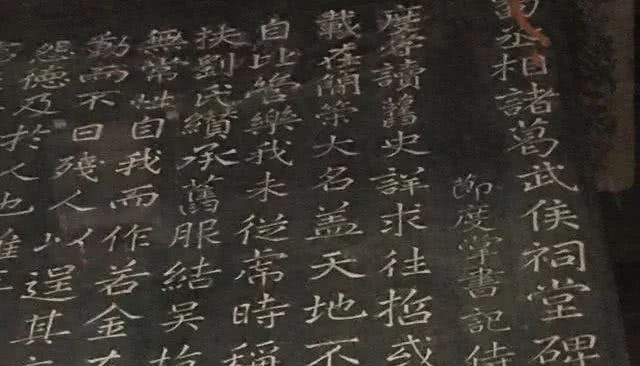 蜀丞相諸葛武侯祠堂碑
節度掌書記侍
度嘗讀舊史詳求往哲或
載在簡策大名蓋天地不
自比管樂我未從虎時稱
扶劉氏纘承舊服結吳抗
無常性自我而作若金在
動而不曰殘人以逞其
怨德及於人也雖